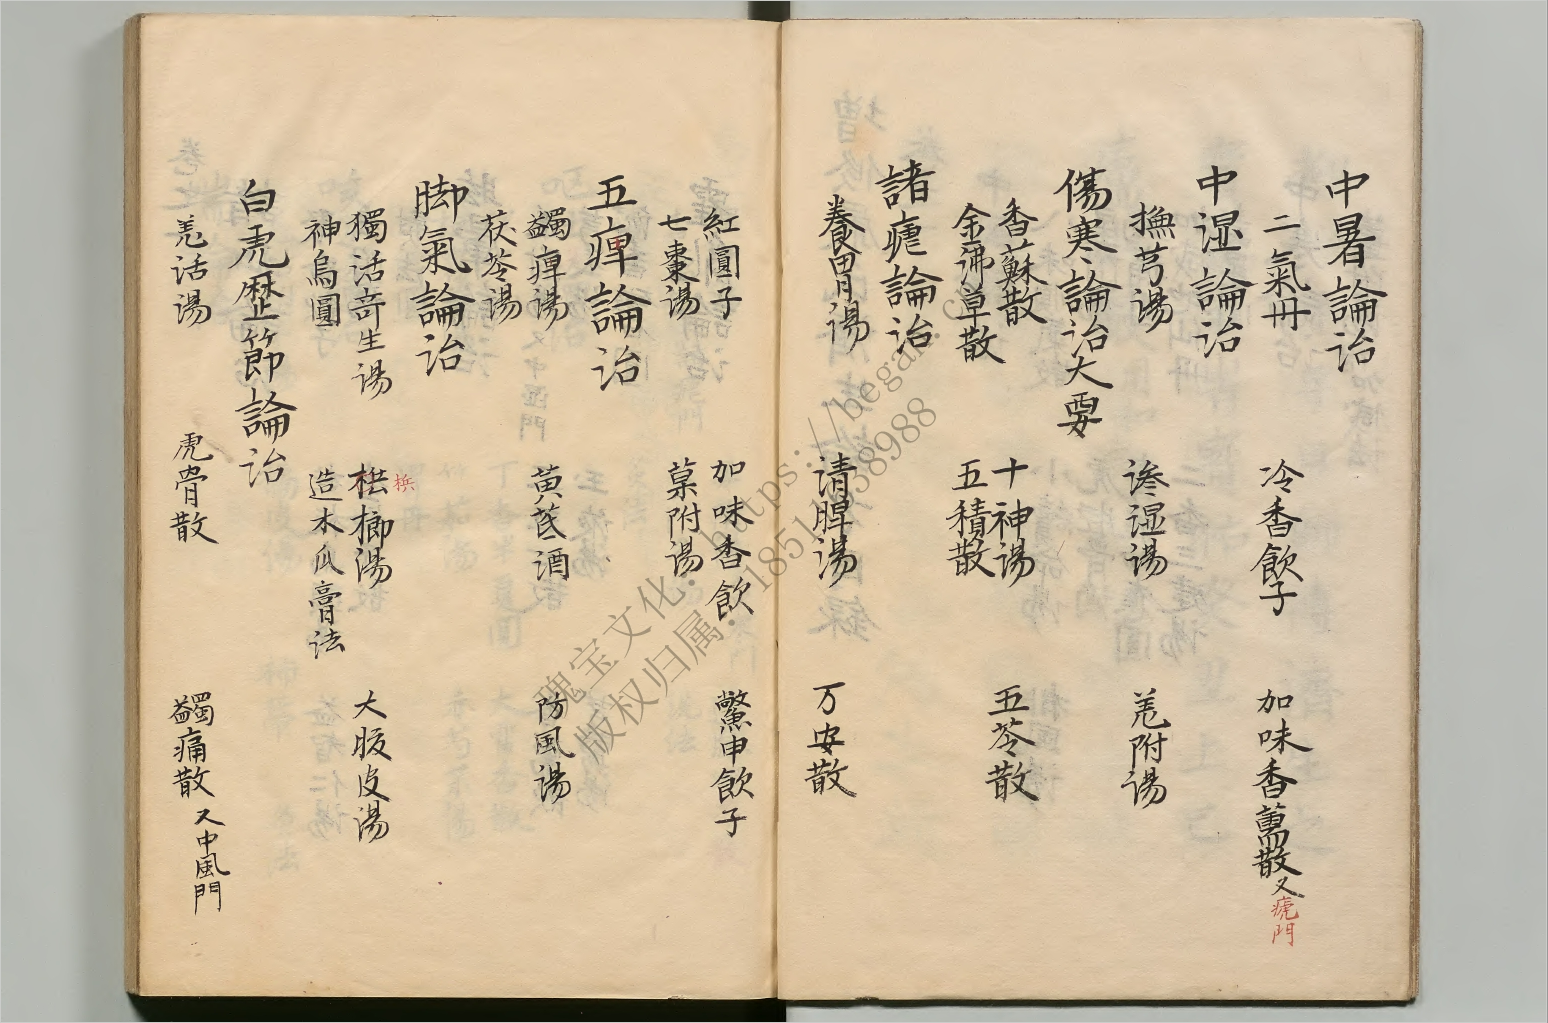 中暑論治
二氣丹 冷香飲子 加味香薷散又瘧門
中湿論治
撫芎湯 滲湿湯 羗附湯
傷寒論治大要
香蘇散 十神湯 五苓散
金沸草散 五積散
諸瘧論治
養胃湯 清脾湯 万安散
紅圓子 加味香飲 鱉甲飲子
七棗湯 菓附湯
五痺論治
蠲痺湯 黄芪酒 防風湯
茯苓湯
脚氣論治
獨活寄生湯 梹榔湯 大腹皮湯
梹
神烏圓 造木瓜膏法
白虎歴節論治
羗活湯 虎骨散 蠲痛散 又中風門
瑰宝文化:https://begar.c
版权归属:18511138988